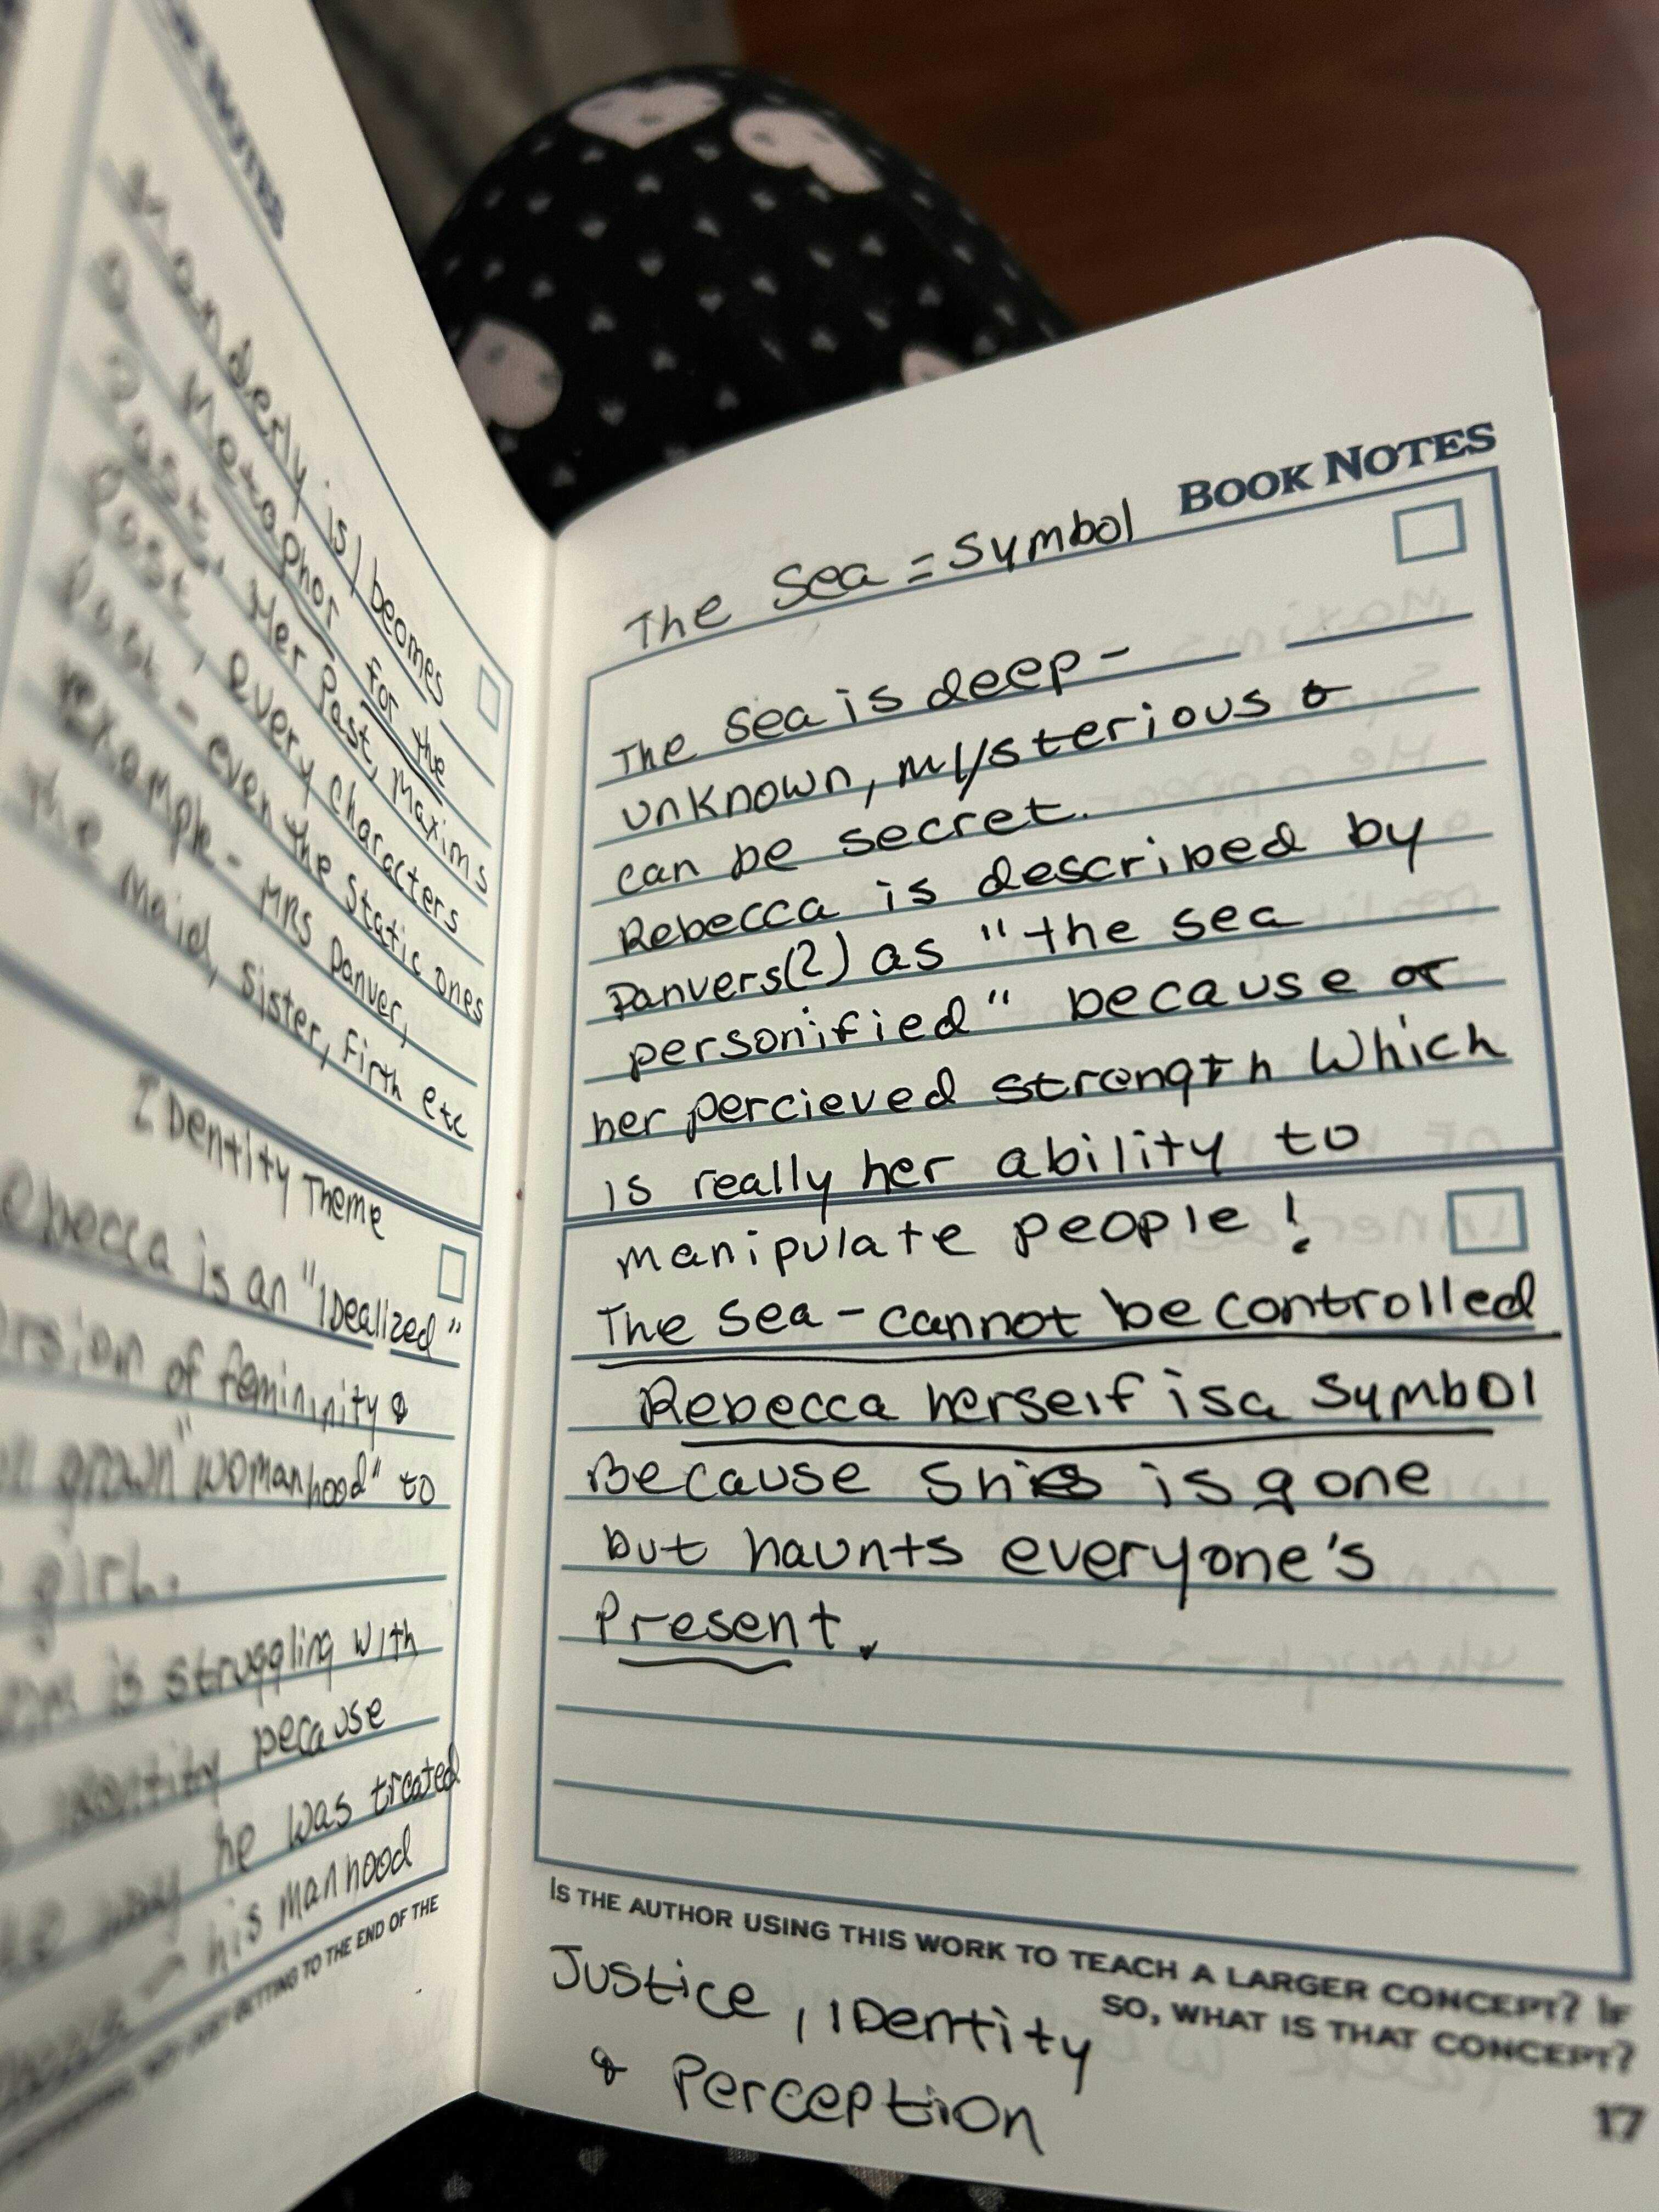 Notes
Manderly is/becomes
a metaphor for the
Past, Her Past, Maxims
Past, every characters
Past - even the static ones
example - MRS Danver,
the maid, sister, Firth etc
IDentity Theme
ebecca is an "IDealized"
ersion of femininity &
grown "womanhood" to
girl.
is struggling with
identity because
way he was treated
his manhood
getting to the end of the
Book Notes
The Sea = Symbol
The Sea is deep -
unknown, mysterious &
can be secret.
Rebecca is described by
Danvers(?) as "the sea
personified" because of
her percieved strength Which
is really her ability to
manipulate people!
The Sea - cannot be controlled
Rebecca herself is a Symbol
Because is gone
but haunts everyone's
Present.
Is the author using this work to teach a larger concept? If
so, what is that concept?
Justice, IDentity
& Perception
17